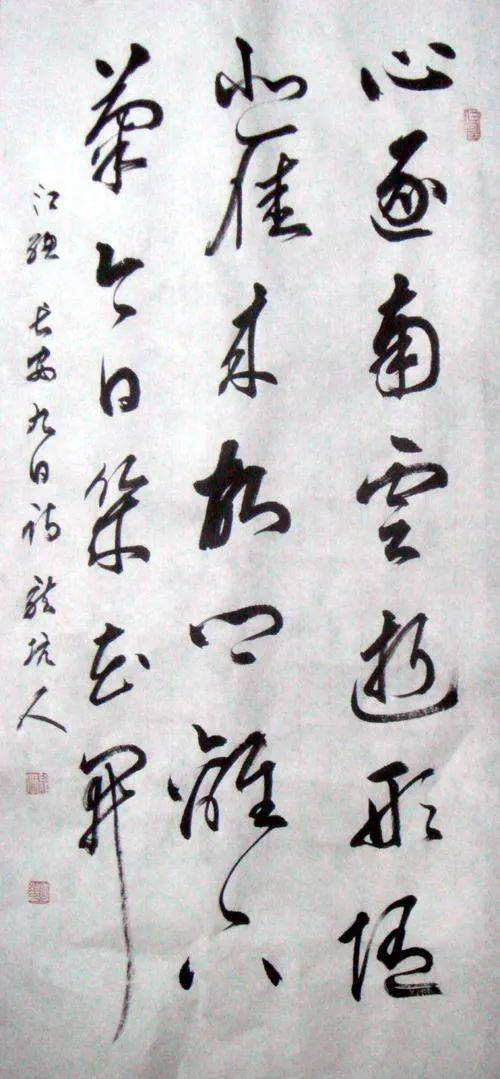 心逐南雲逝形隨
北雁來故鄉籬下
菊今日幾花開
江總長安九日詩 人